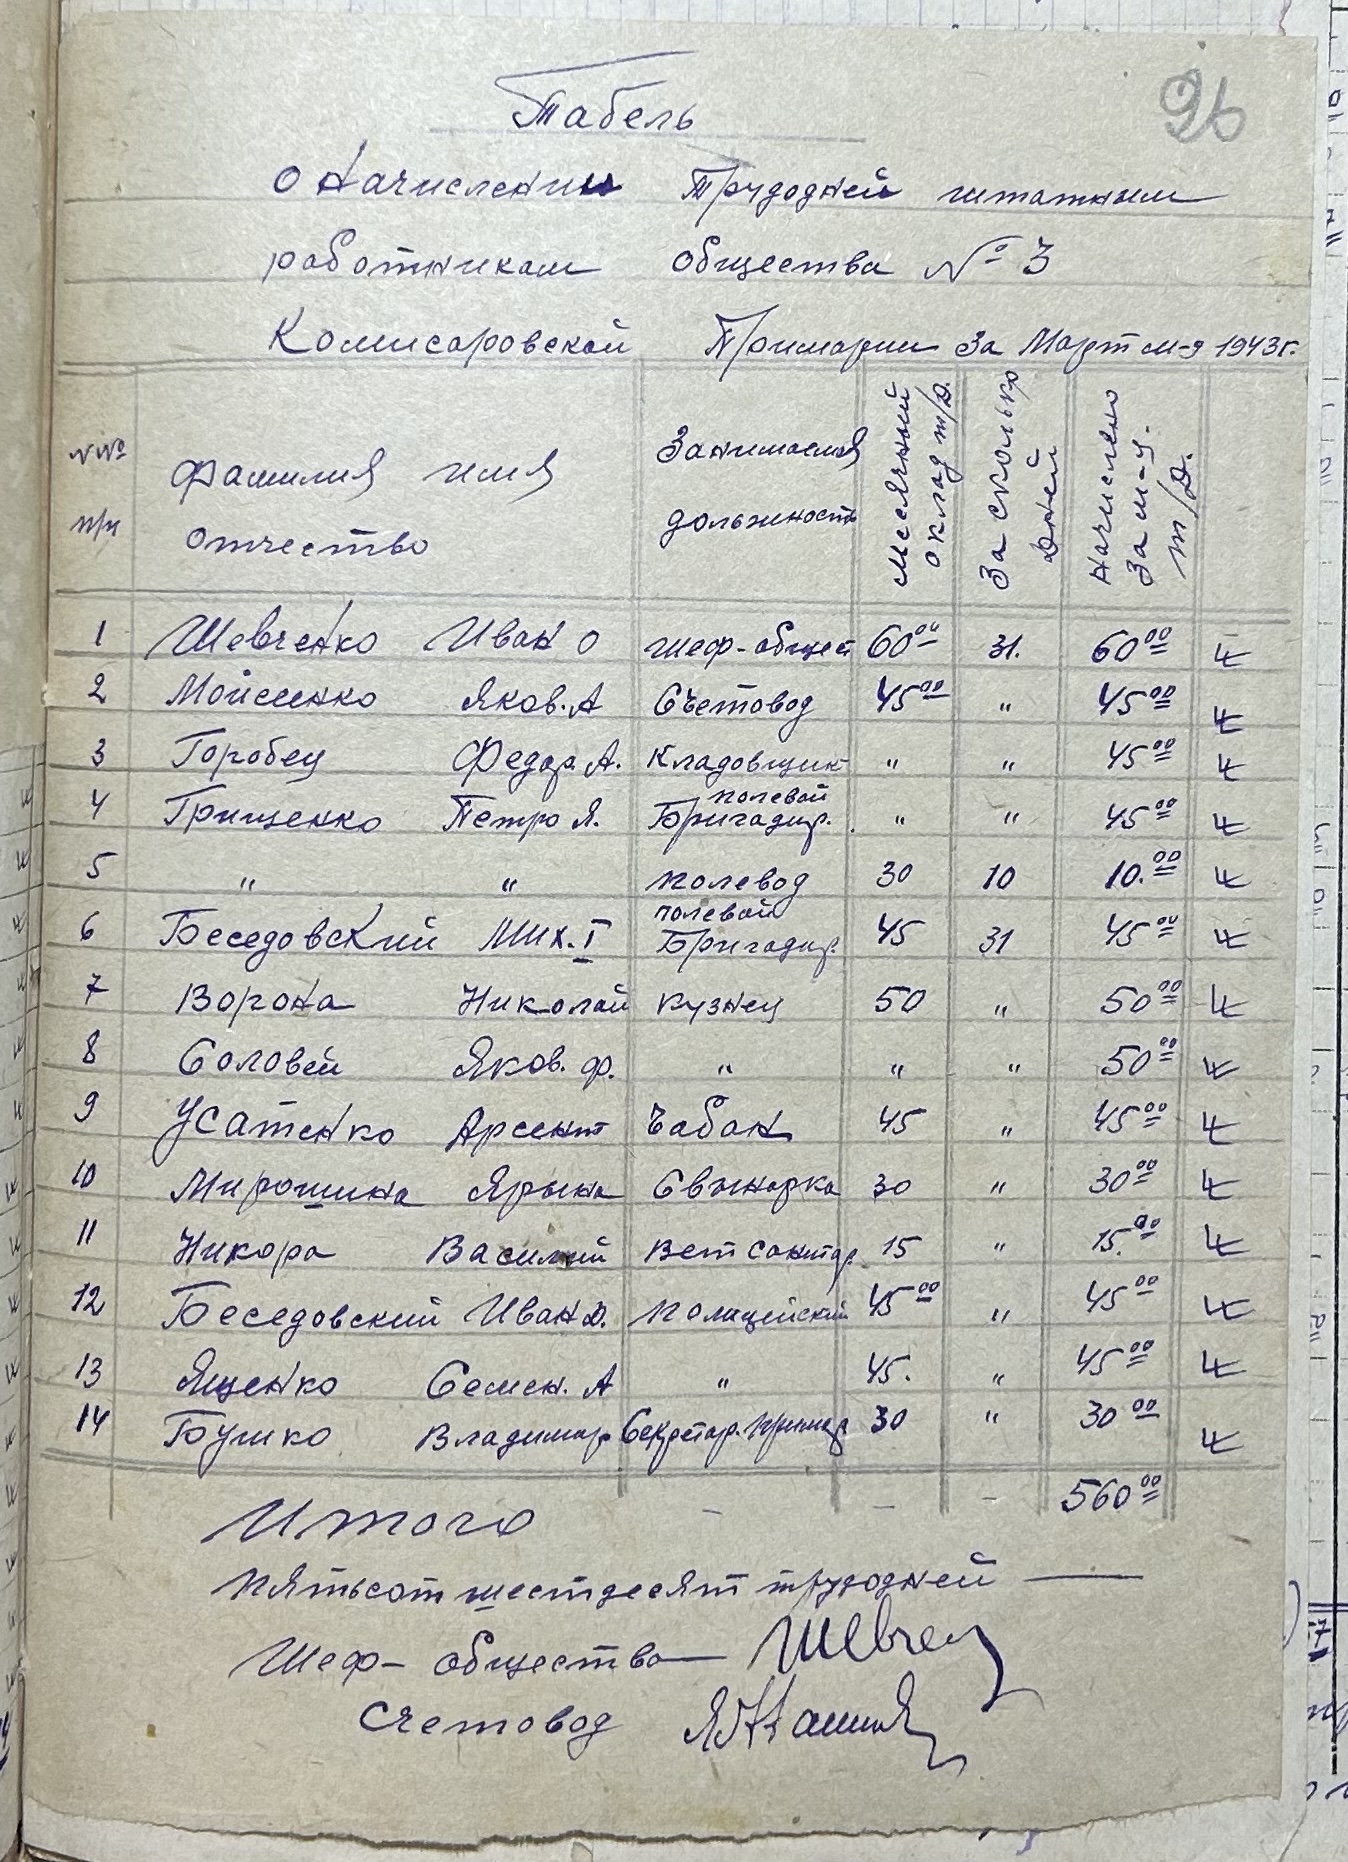 96
Табель
о начислении Трудодней штатным
работникам общества № 3
Комисаровской Примарии за Март м-ц 1943 г.
№№ п/п Фамилия имя отчество Занимаемая должность Месячный оклад т/д. За сколько дней Начислено за м-ц. т/д.
1 Шевченко Иван О Шеф-общест 60 00 31. 60 00
2 Мойсенко Яков. А Счетовод 45 00 " 45 00
3 Горобец Федор. А. Кладовщик " " 45 00
4 Грищенко Петро Я. полевой Бригадир. " " 45 00
5 " " полевод 30 10 10. 00
6 Беседовский Мих. I полевой Бригадир. 45 31 45 00
7 Ворона Николай кузнец 50 " 50 00
8 Соловей Яков. ф. " " " 50 00
9 Усатенко Арсент Чабан 45 " 45 00
10 Мирошина Ярына Свинарка 30 " 30 00
11 Никора Василий вет санитар. 15 " 15. 00
12 Беседовский Иван Д. полицейский 45 00 " 45 00
13 Яценко Семен. А " 45. " 45 00
14 Бушко Владимир Секретар. пример 30 " 30 00
Итого - - - 560 00
пятьсот шестдесят трудодней —
Шеф- общества Шевчен
Счетовод